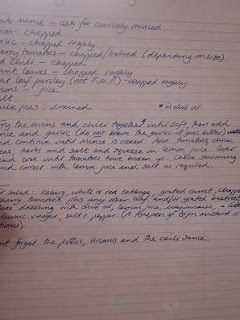 mince - ask for coarsely minced
- chopped
- chopped roughly
tomatoes - chopped/halved (depending on size)
chilli - chopped
leaves - chopped roughly
leaf parsley (not F.M.F) - chopped roughly
- juice
peas - drained * in olive oil.
the onions and chilli together* until soft, then add
and garlic (do not brown the garlic it goes bitter)
and continue until mince is cooked. Add tomatoes, chick
herbs and salt and squeeze in lemon juice. Cover
and cook until tomatoes have broken up. Check seasoning
and correct with lemon juice and salt as required.
Salad: iceberg, white or red cabbage, grated carrot, chopped
tomatoes plus any other leaf and/or grated beetroot
dressing with olive oil, lemon juice,
vinegar, salt & pepper (a teaspoon of Dijon mustard is
forget the pittas, humus and the chilli sauce.